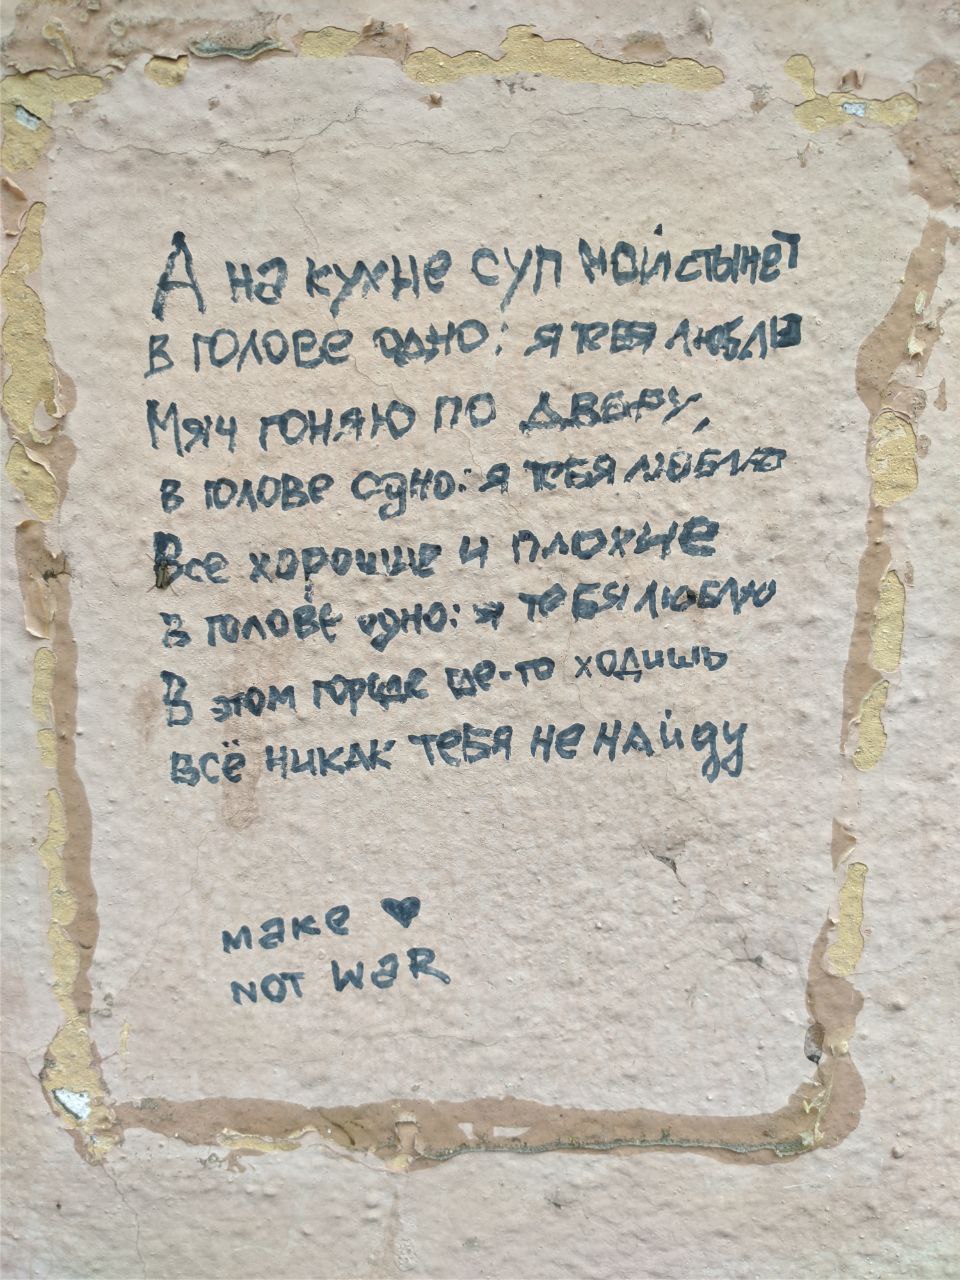 А на кухне суп мой стынет
в голове одно: я тебя люблю
Мяч гоняю по двору,
в голове одно: я тебя люблю
Все хорошие и плохие
в голове одно: я тебя люблю
В этом городе где-то ходишь
всё никак тебя не найду
make ♥
NOT WaR